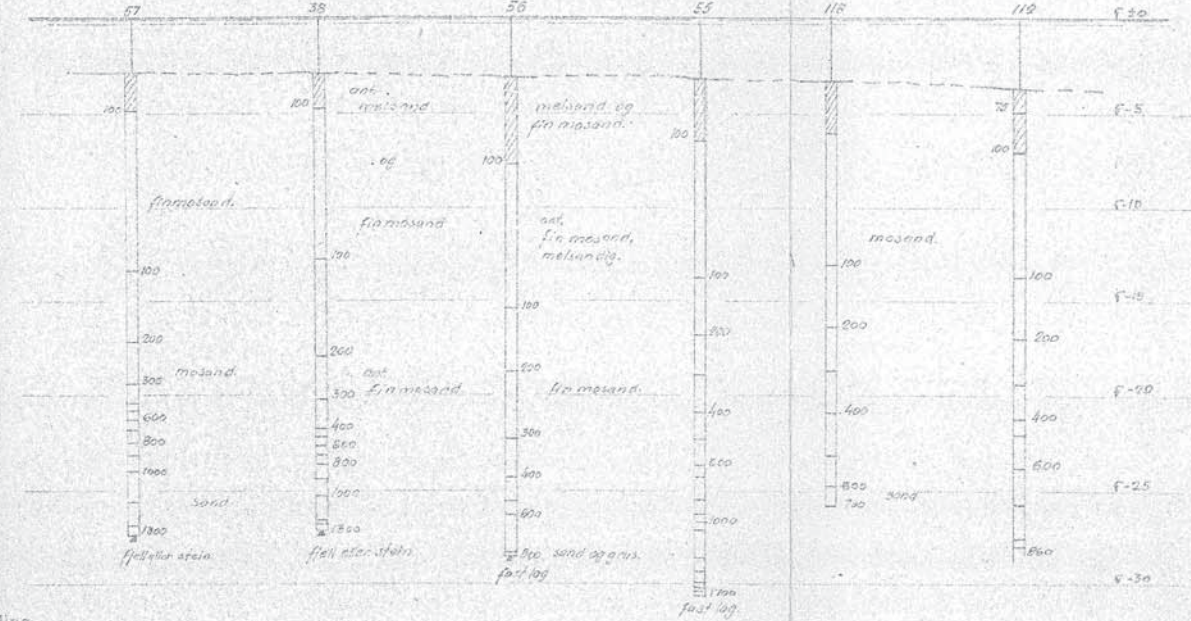 57
38
56
55
118
119
F ±0
100
finmosand.
100
200
300
mosand.
600
800
1000
sand
1300
fjell eller stein.
100
ant.
melsand
og
finmosand
100
200
ant.
300
finmosand
400
600
800
1000
1300
fjell eller stein.
melsand og
fin mosand.
100
ant.
fin mosand,
melsandig.
100
200
fin mosand.
300
400
600
800
sand og grus.
fast lag
100
100
200
400
600
1000
1700
fast lag.
mosand.
100
200
400
600
700
sand
75
100
100
200
400
600
860
F-5
F-10
F-15
F-20
F-25
F-30